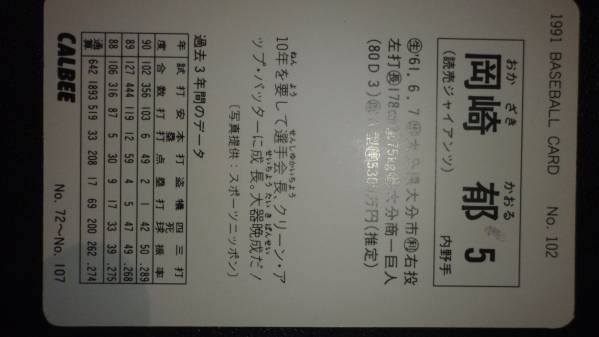 1991 BASEBALL CARD No. 102
おか ざき かおる
岡崎 郁 5
(読売ジャイアンツ) 内野手
生'61. 6. 7 大分市 右投
左打 178 75kg 大分商―巨人
(80D3) 530万円(推定)
ねん よう せんしゅかいちょう
10年を要して選手会長、クリーン・ア
せいちょう たいきばんせい
ップ・バッターに成長。大器晩成だ!
(写真提供:スポーツニッポン)
過去3年間のデータ
年度 試合 打数 安打 本塁打 打点 盗塁 犠打 四死球 三振 打率
90 102 356 103 6 49 2 1 42 50 .289
89 127 444 119 12 59 4 5 47 49 .268
88 106 316 87 5 30 9 17 33 39 .275
通算 642 1893 519 33 208 17 69 200 262 .274
CALBEE No. 72～No. 107